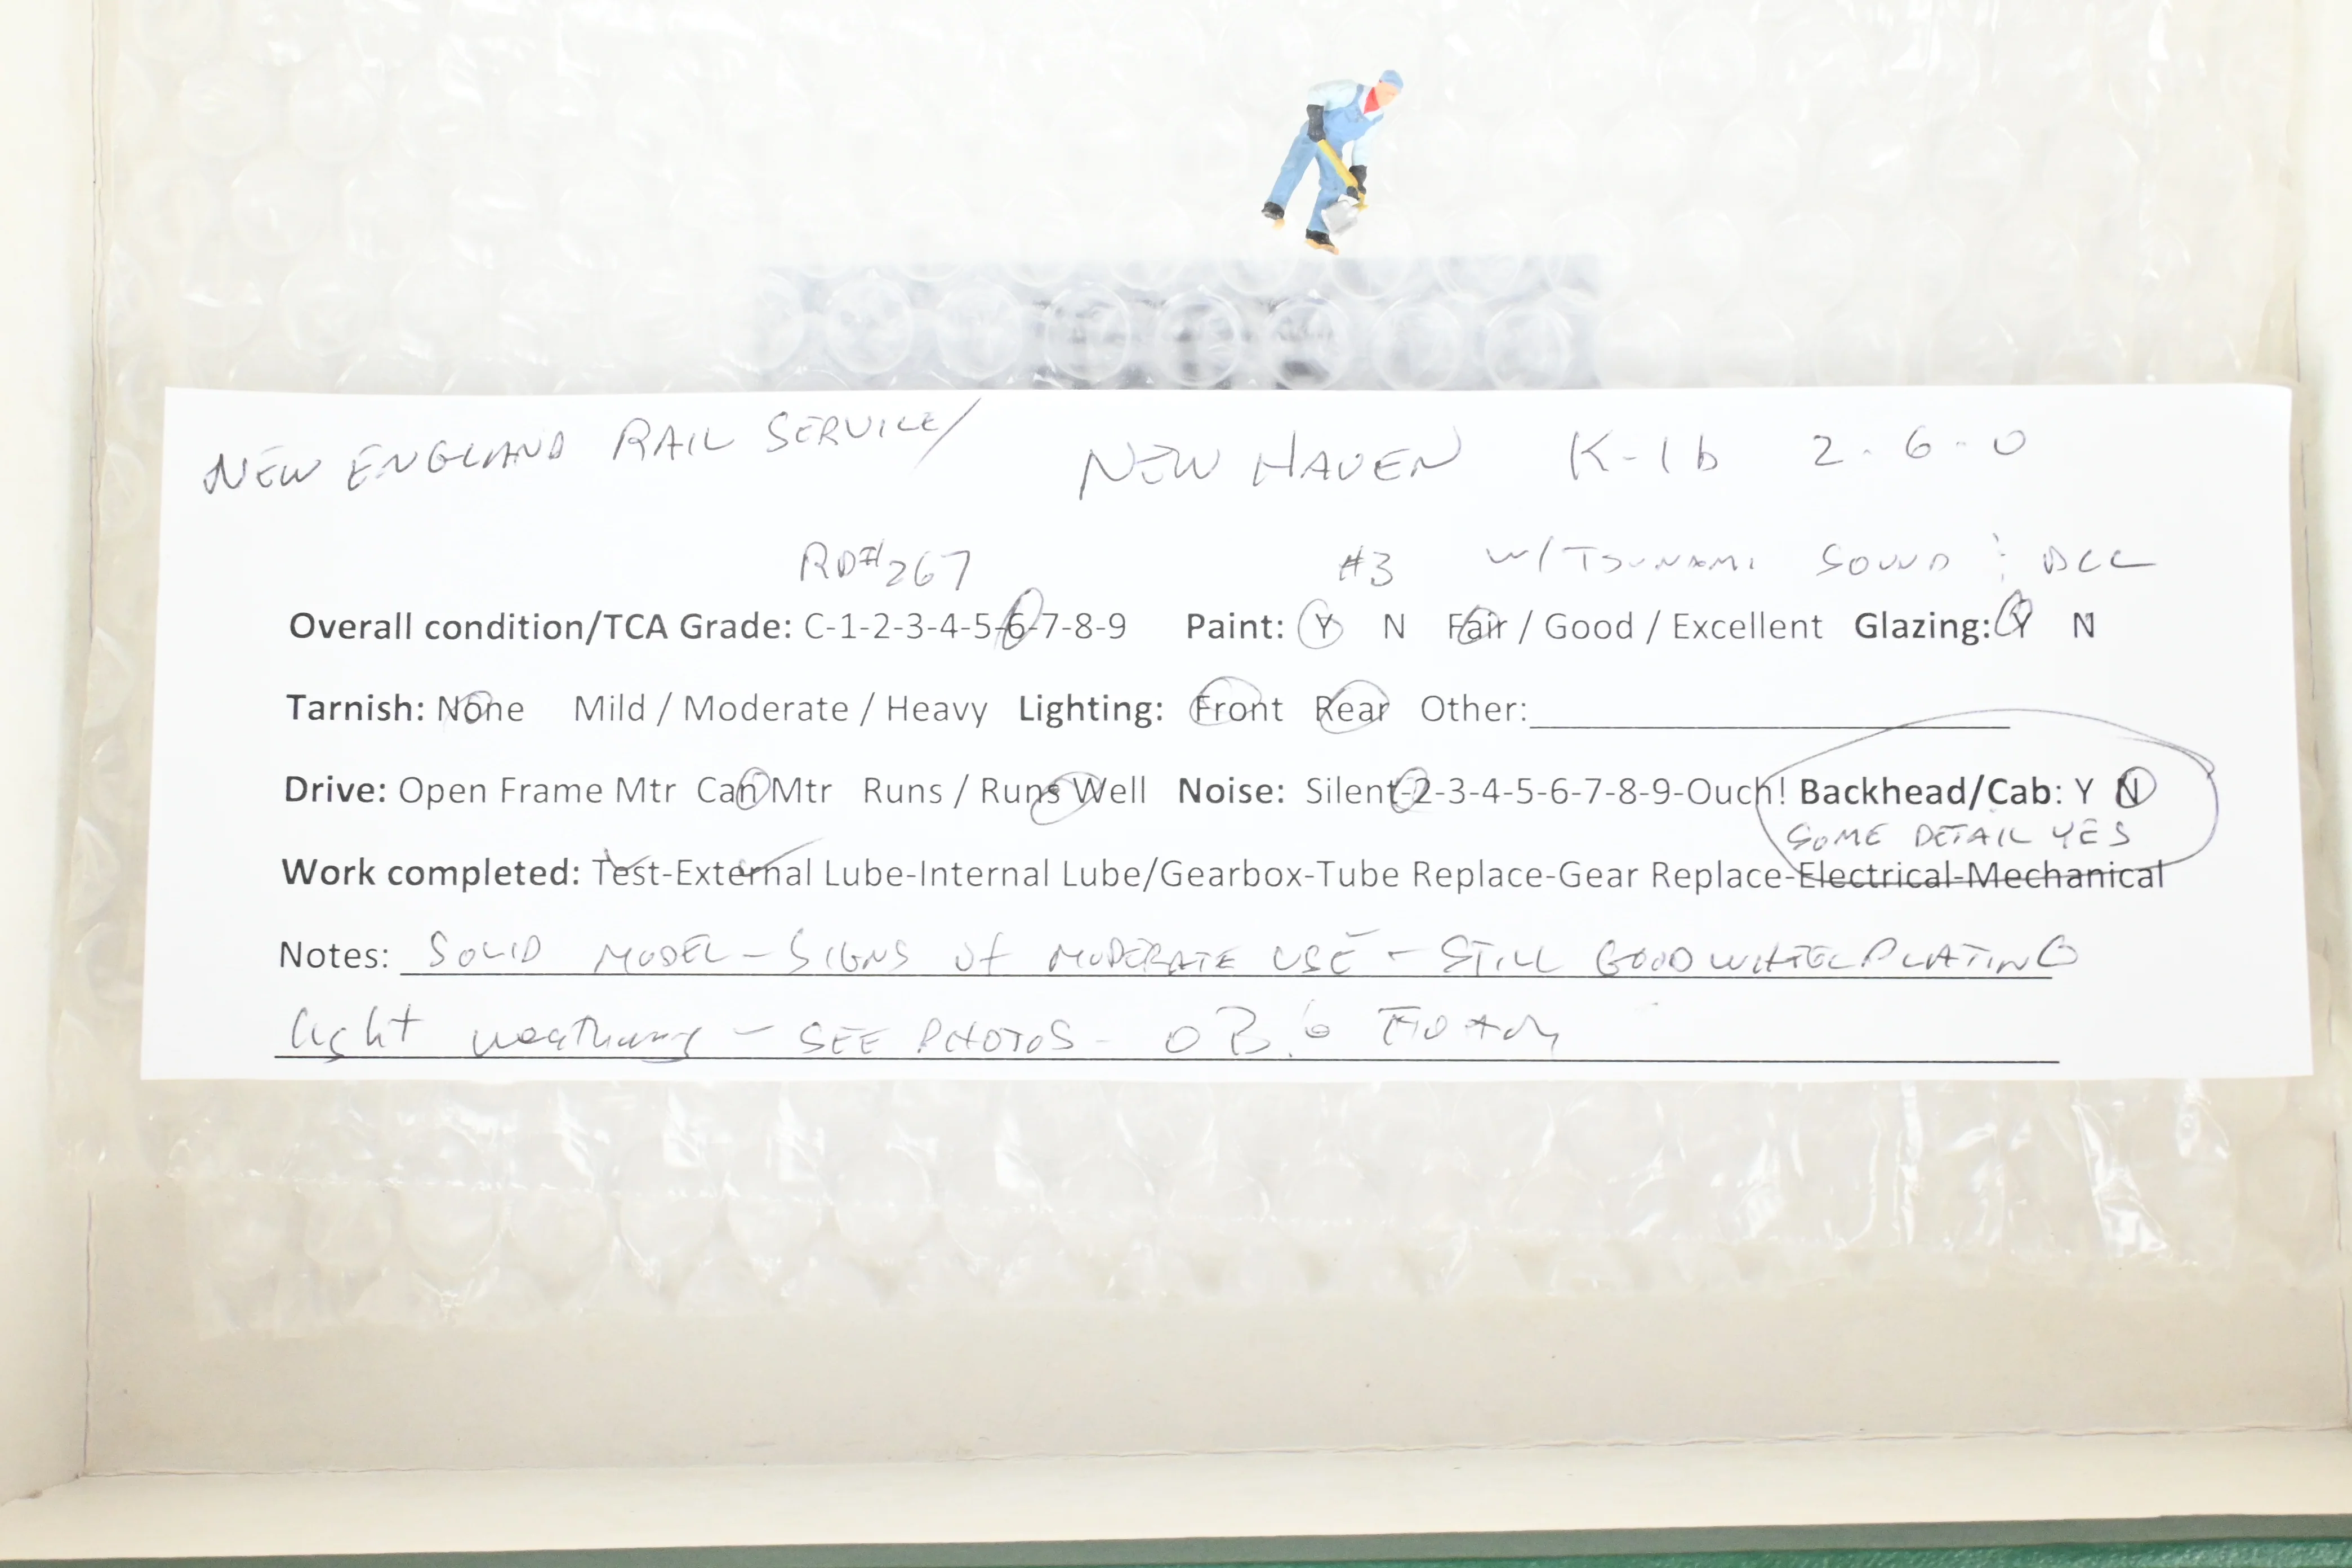 NEW ENGLAND RAIL SERVICE/ NEW HAVEN K-1b 2-6-0
RD#267 #3 W/TSUNAMI SOUND & DCC
Overall condition/TCA Grade: C-1-2-3-4-5-6-7-8-9 Paint: Y N Fair / Good / Excellent Glazing: Y N
Tarnish: None Mild / Moderate / Heavy Lighting: Front Rear Other:
Drive: Open Frame Mtr Can Mtr Runs / Runs Well Noise: Silent-2-3-4-5-6-7-8-9-Ouch! Backhead/Cab: Y N
SOME DETAIL YES
Work completed: Test-External Lube-Internal Lube/Gearbox-Tube Replace-Gear Replace-Electrical-Mechanical
Notes: SOLID MODEL - SIGNS of MODERATE USE - STILL GOOD WHEEL PLATING
light weathering - SEE PHOTOS - OB. 6